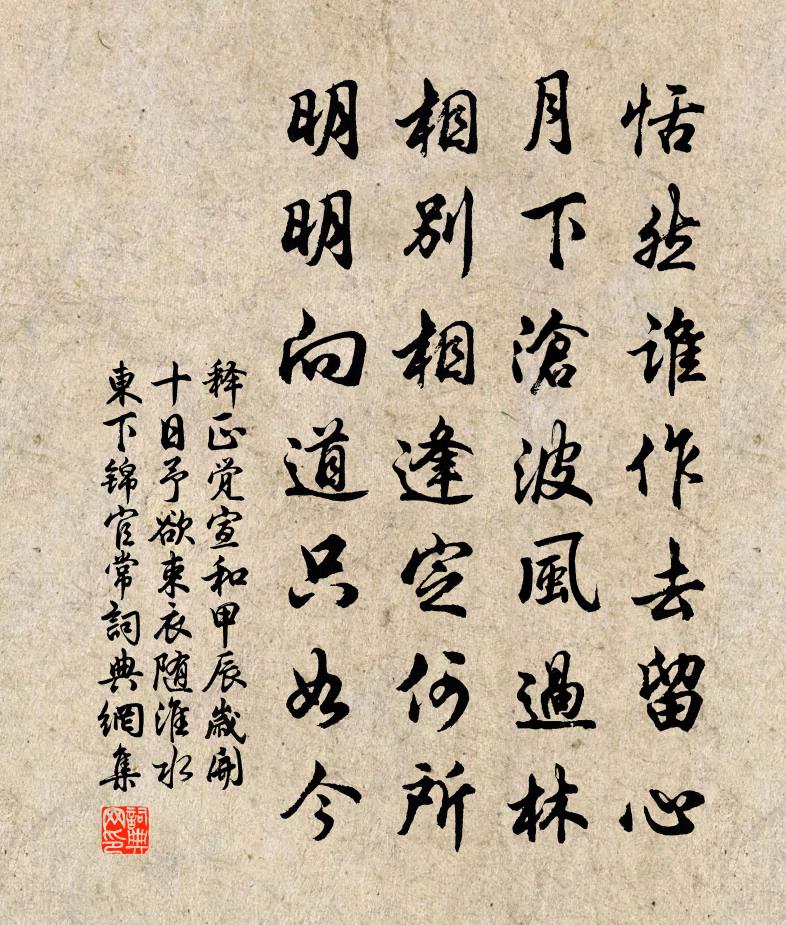 恬然谁作去留心
月下滄波風過林
相别相逢定何所
明明向道只如今
释正觉宣和甲辰歲開
十日予欲東衣随淮水
東下锦官常詞典網集
詞典网印